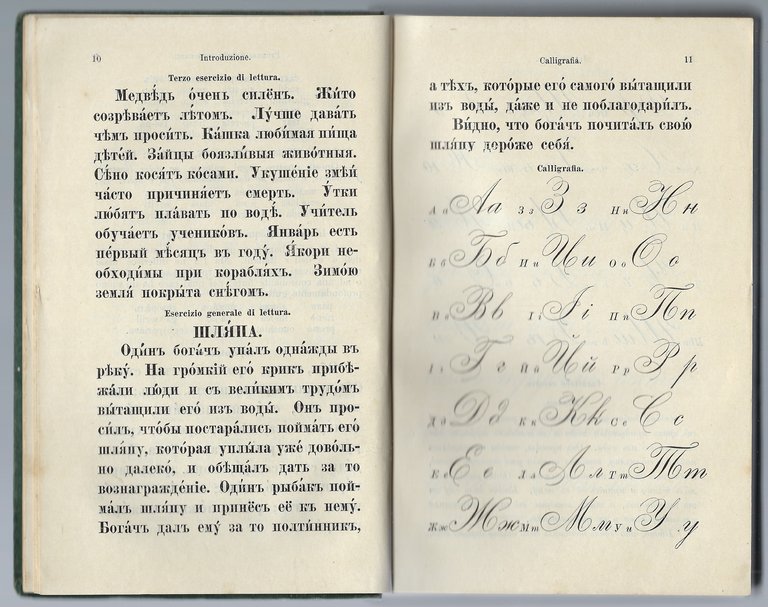 10
Introduzione.
Terzo esercizio di lettura.
Медвѣ́дь о́чень силёнъ. Жи́то
созрѣва́етъ лѣ́томъ. Лу́чше дава́ть
чѣмъ проси́ть. Ка́шка люби́мая пи́ща
дѣте́й. За́йцы боязли́выя живо́тныя.
Сѣ́но кося́тъ ко́сами. Укуше́ніе змѣи́
ча́сто причиня́етъ смерть. У́тки
лю́бятъ пла́вать по водѣ́. Учи́тель
обуча́етъ ученико́въ. Янва́рь есть
пе́рвый мѣ́сяцъ въ году́. Я́кори не-
обходи́мы при корабля́хъ. Зимо́ю
земля́ покры́та снѣ́гомъ.
Esercizio generale di lettura.
ШЛЯ́ПА.
Оди́нъ бога́чъ упа́лъ одна́жды въ
рѣку́. На гро́мкій его́ крикъ прибѣ-
жа́ли лю́ди и съ вели́кимъ трудо́мъ
вы́тащили его́ изъ воды́. Онъ про-
си́лъ, что́бы постара́лись пойма́ть его́
шля́пу, кото́рая уплыла́ уже́ дово́ль-
но далеко́, и обѣща́лъ дать за то
вознагражде́ніе. Оди́нъ рыба́къ пой-
ма́лъ шля́пу и принёсъ её къ нему́.
Бога́чъ далъ ему́ за то полти́нникъ,
Calligrafia.
11
а тѣхъ, кото́рые его́ самого́ вы́тащили
изъ воды́, да́же и не поблагодари́лъ.
Ви́дно, что бога́чъ почита́лъ свою́
шля́пу доро́же себя́.
Calligrafia.
А а Аа З з З з Н н Н н
Б б Бб И и Ии О о О о
В в Вв І і І і П п Пп
Г г Й й Йй Р р Р р
Д д Дд К к Кк С с С с
Е е Е е Л л Л л Т т Тт
Ж ж Жж М м Мм У у У у